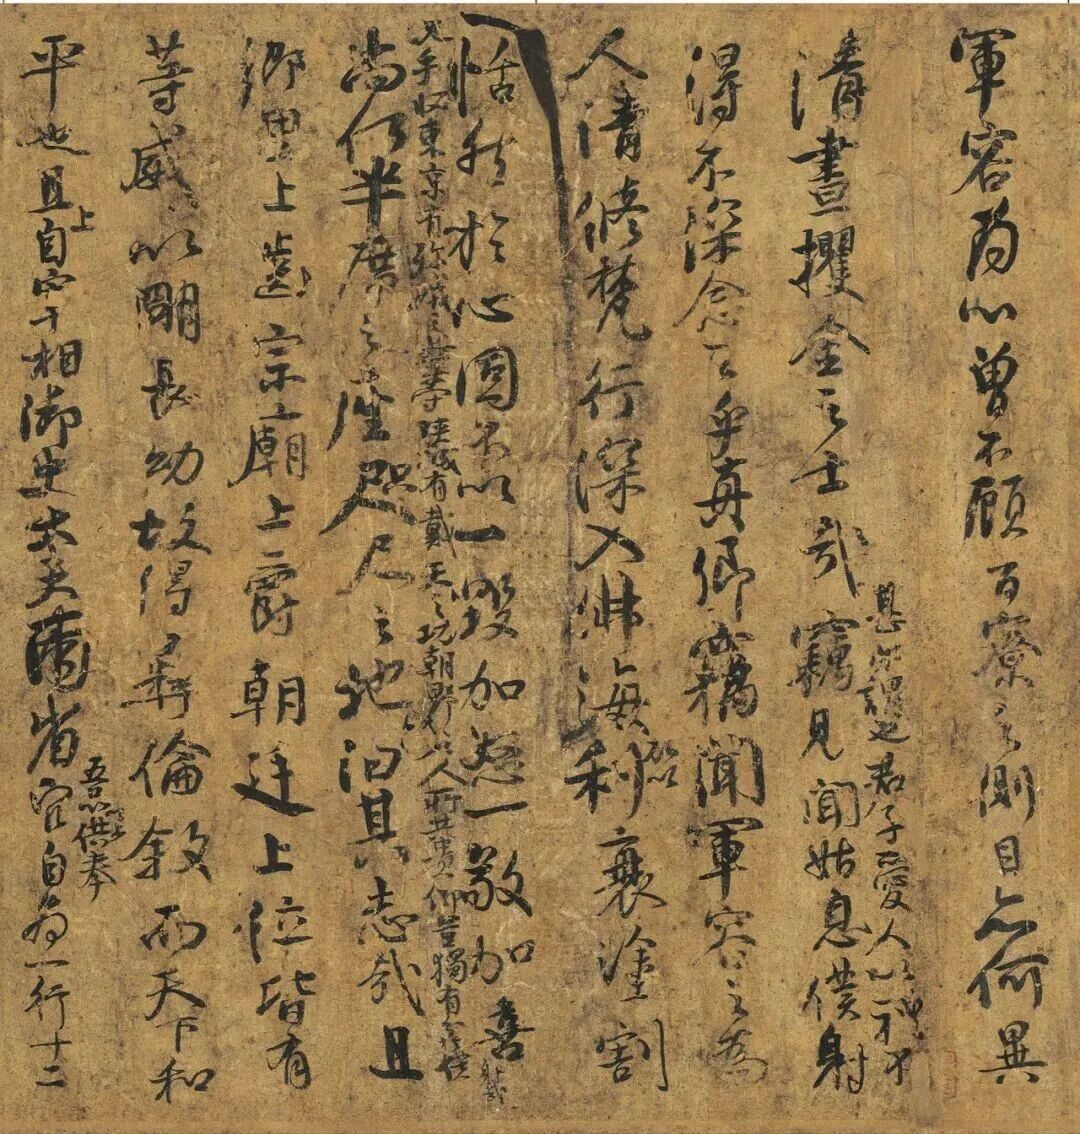 軍容為心曾不顧百寮之側目亦何異
清晝攫金之士哉竊見聞姑息僕射
甚非謂也君子愛人以禮不
得不深念之乎真卿竊聞軍容之為
人清修梵行深入佛海利衰塗割
恬然於心固不以一毀加怒一敬加喜
收東京有殄賊之業陝城有戴天之功朝野之人所共貴仰豈獨有分於僕射哉
尚何半席之座咫尺之地汩其志哉且
鄉里上齒宗廟上爵朝廷上位皆有
等威以明長幼故得彝倫敘而天下和
平也且上自宰相御史大夫兩省官自為一行十二
供奉